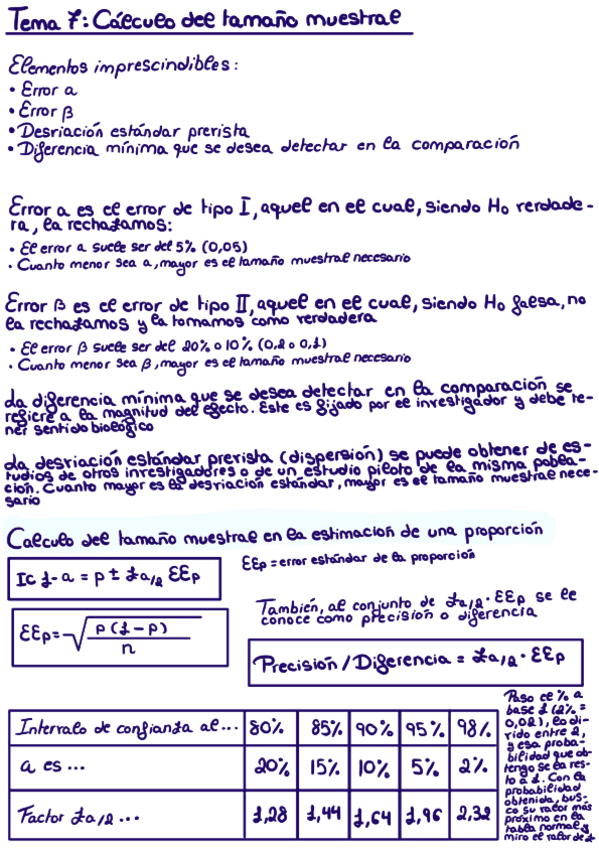 Tema 7: Cálculo del tamaño muestral
Elementos imprescindibles:
• Error α
• Error β
• Desviación estándar prevista
• Diferencia mínima que se desea detectar en la comparación
Error α es el error de tipo I, aquel en el cual, siendo H₀ verdade-
ra, la rechazamos:
• El error α suele ser del 5% (0,05)
• Cuanto menor sea α, mayor es el tamaño muestral necesario
Error β es el error de tipo II, aquel en el cual, siendo H₀ falsa, no
la rechazamos y la tomamos como verdadera
• El error β suele ser del 20% o 10% (0,2 o 0,1)
• Cuanto menor sea β, mayor es el tamaño muestral necesario
La diferencia mínima que se desea detectar en la comparación se
refiere a la magnitud del efecto. Este es fijado por el investigador y debe te-
ner sentido biológico
La desviación estándar prevista (dispersión) se puede obtener de es-
tudios de otros investigadores o de un estudio piloto de la misma pobla-
ción. Cuanto mayor es la desviación estándar, mayor es el tamaño muestral nece-
sario
Cálculo del tamaño muestral en la estimación de una proporción
IC 1-α = p ± zα/2 EEp
EEp = error estándar de la proporción
EEp = √(p(1-p)/n)
También, al conjunto de zα/2 · EEp se le
conoce como precisión o diferencia
Precisión / Diferencia = zα/2 · EEp
Intervalo de confianza al... 80% 85% 90% 95% 98%
α es ... 20% 15% 10% 5% 2%
Factor zα/2 ... 1,28 1,44 1,64 1,96 2,32
Paso el % a
base 1 (2% =
0,02), lo di-
vido entre 2,
y esa proba-
bilidad que ob-
tengo se la res-
to a 1. Con la
probabilidad
obtenida, bus-
co su valor más
próximo en la
tabla normal y
miro el valor de z